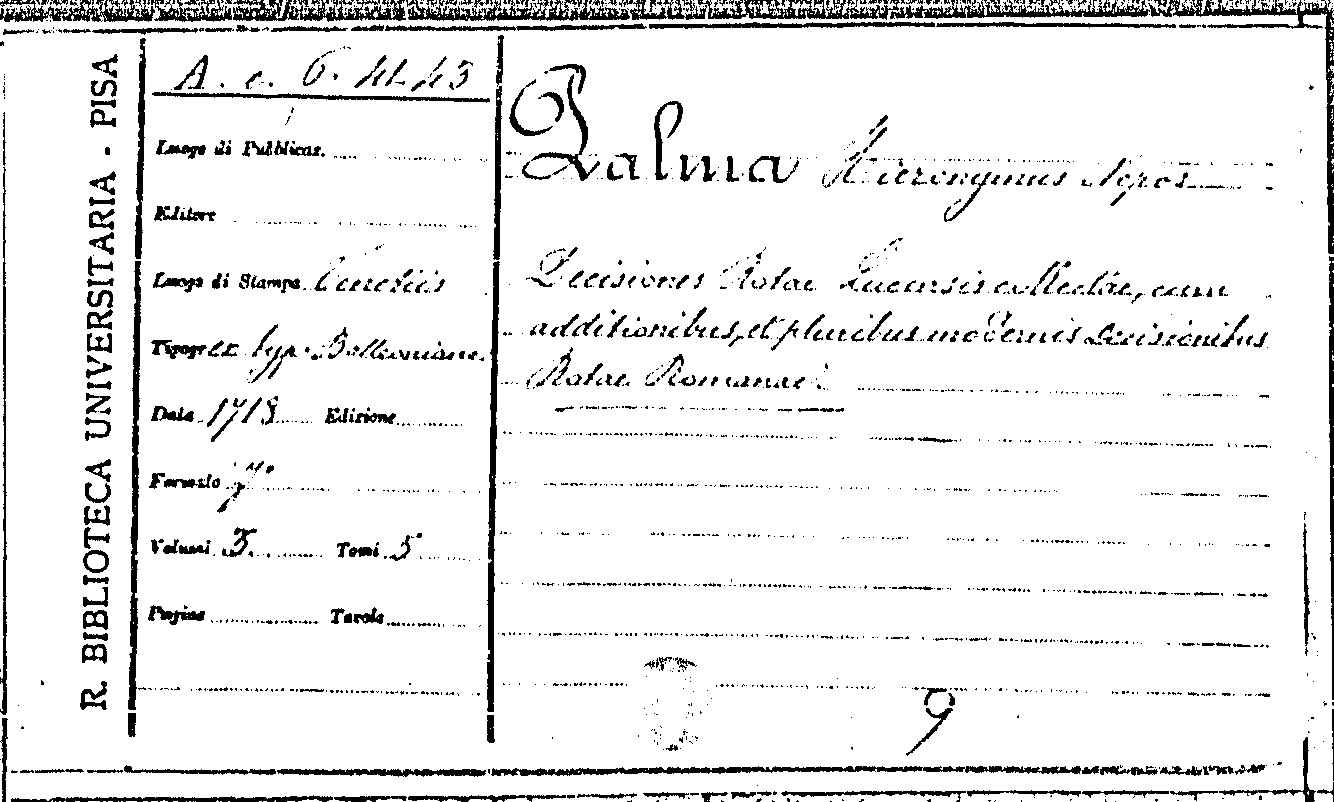 R. BIBLIOTECA UNIVERSITARIA - PISA
A. c. 6. 41-43
Luogo di Pubblicaz.
Editore
Luogo di Stampa Venetiis
Tipogr ex typ. Balleoniana
Data 1718 Edizione
Formato
Volumi 3. Tomi 5
Pagine Tavole
Palma Hieronymus Nepos
Decisiones Rotae Lucensis collectae, cum
additionibus, et pluribus modernis Decisionibus
Rotae Romanae
9